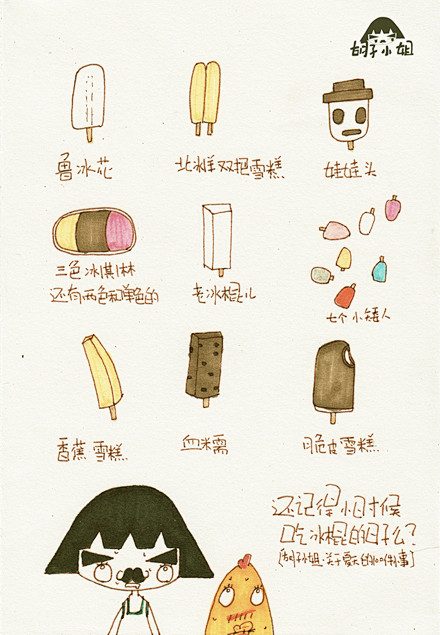 胡子小姐
鲁冰花
北冰洋双棒雪糕
娃娃头
三色冰淇淋
还有两色和单色的
老冰棍儿
七个小矮人
香蕉雪糕
血米需
脆皮雪糕
还记得小时候
吃冰棍的日子么?
[胡子小姐·关于夏天的100件小事]